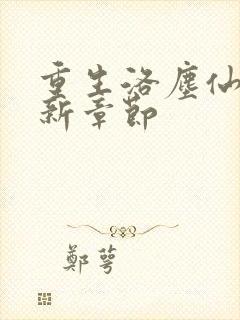 重生洛塵仙
新章節
鄭萼